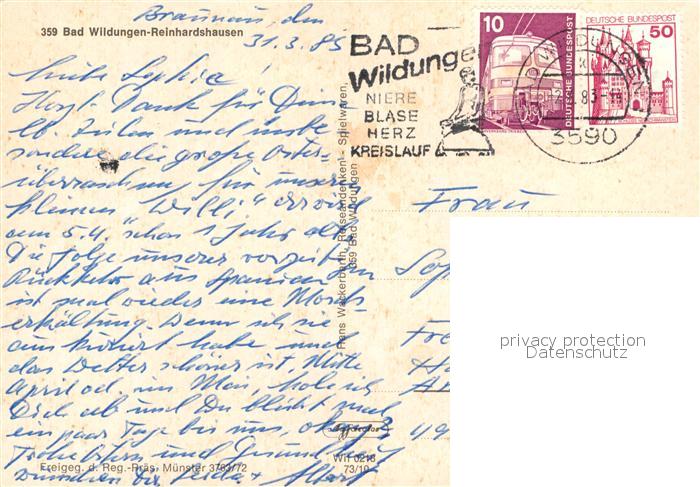 Braunau, den
31.3.85
359 Bad Wildungen-Reinhardshausen
Liebe Sophie
Herzl. Dank für Deine
lb. Zeilen und insbe
sondere die große Oster-
überraschung für unseren
kleinen "Willi" er wird
am 5.4. schon 1 Jahr alt.
Die Folge unserer vorzeitigen
Rückkehr aus Spanien
ist mal wieder eine Mords
erkältung. Wenn ich sie
aus kuriert habe und
das Wetter schöner ist, Mitte
April od. im Mai, hole ich
Dich ab und Du bleibst mal
ein paar Tage bis uns, okay?
Frohe Ostern und Gesund
wünschen Dir
Freigeg. d. Reg.-Präs. Münster 3763/72
Wit 0218
73/10
Hans Wackerbarth, Reiseandenken - Spielwaren,
359 Bad Wildungen
BAD
Wildungen
NIERE
BLASE
HERZ
KREISLAUF
10
DEUTSCHE BUNDESPOST
DEUTSCHE BUNDESPOST
50
3590
Frau
privacy protection
Datenschutz